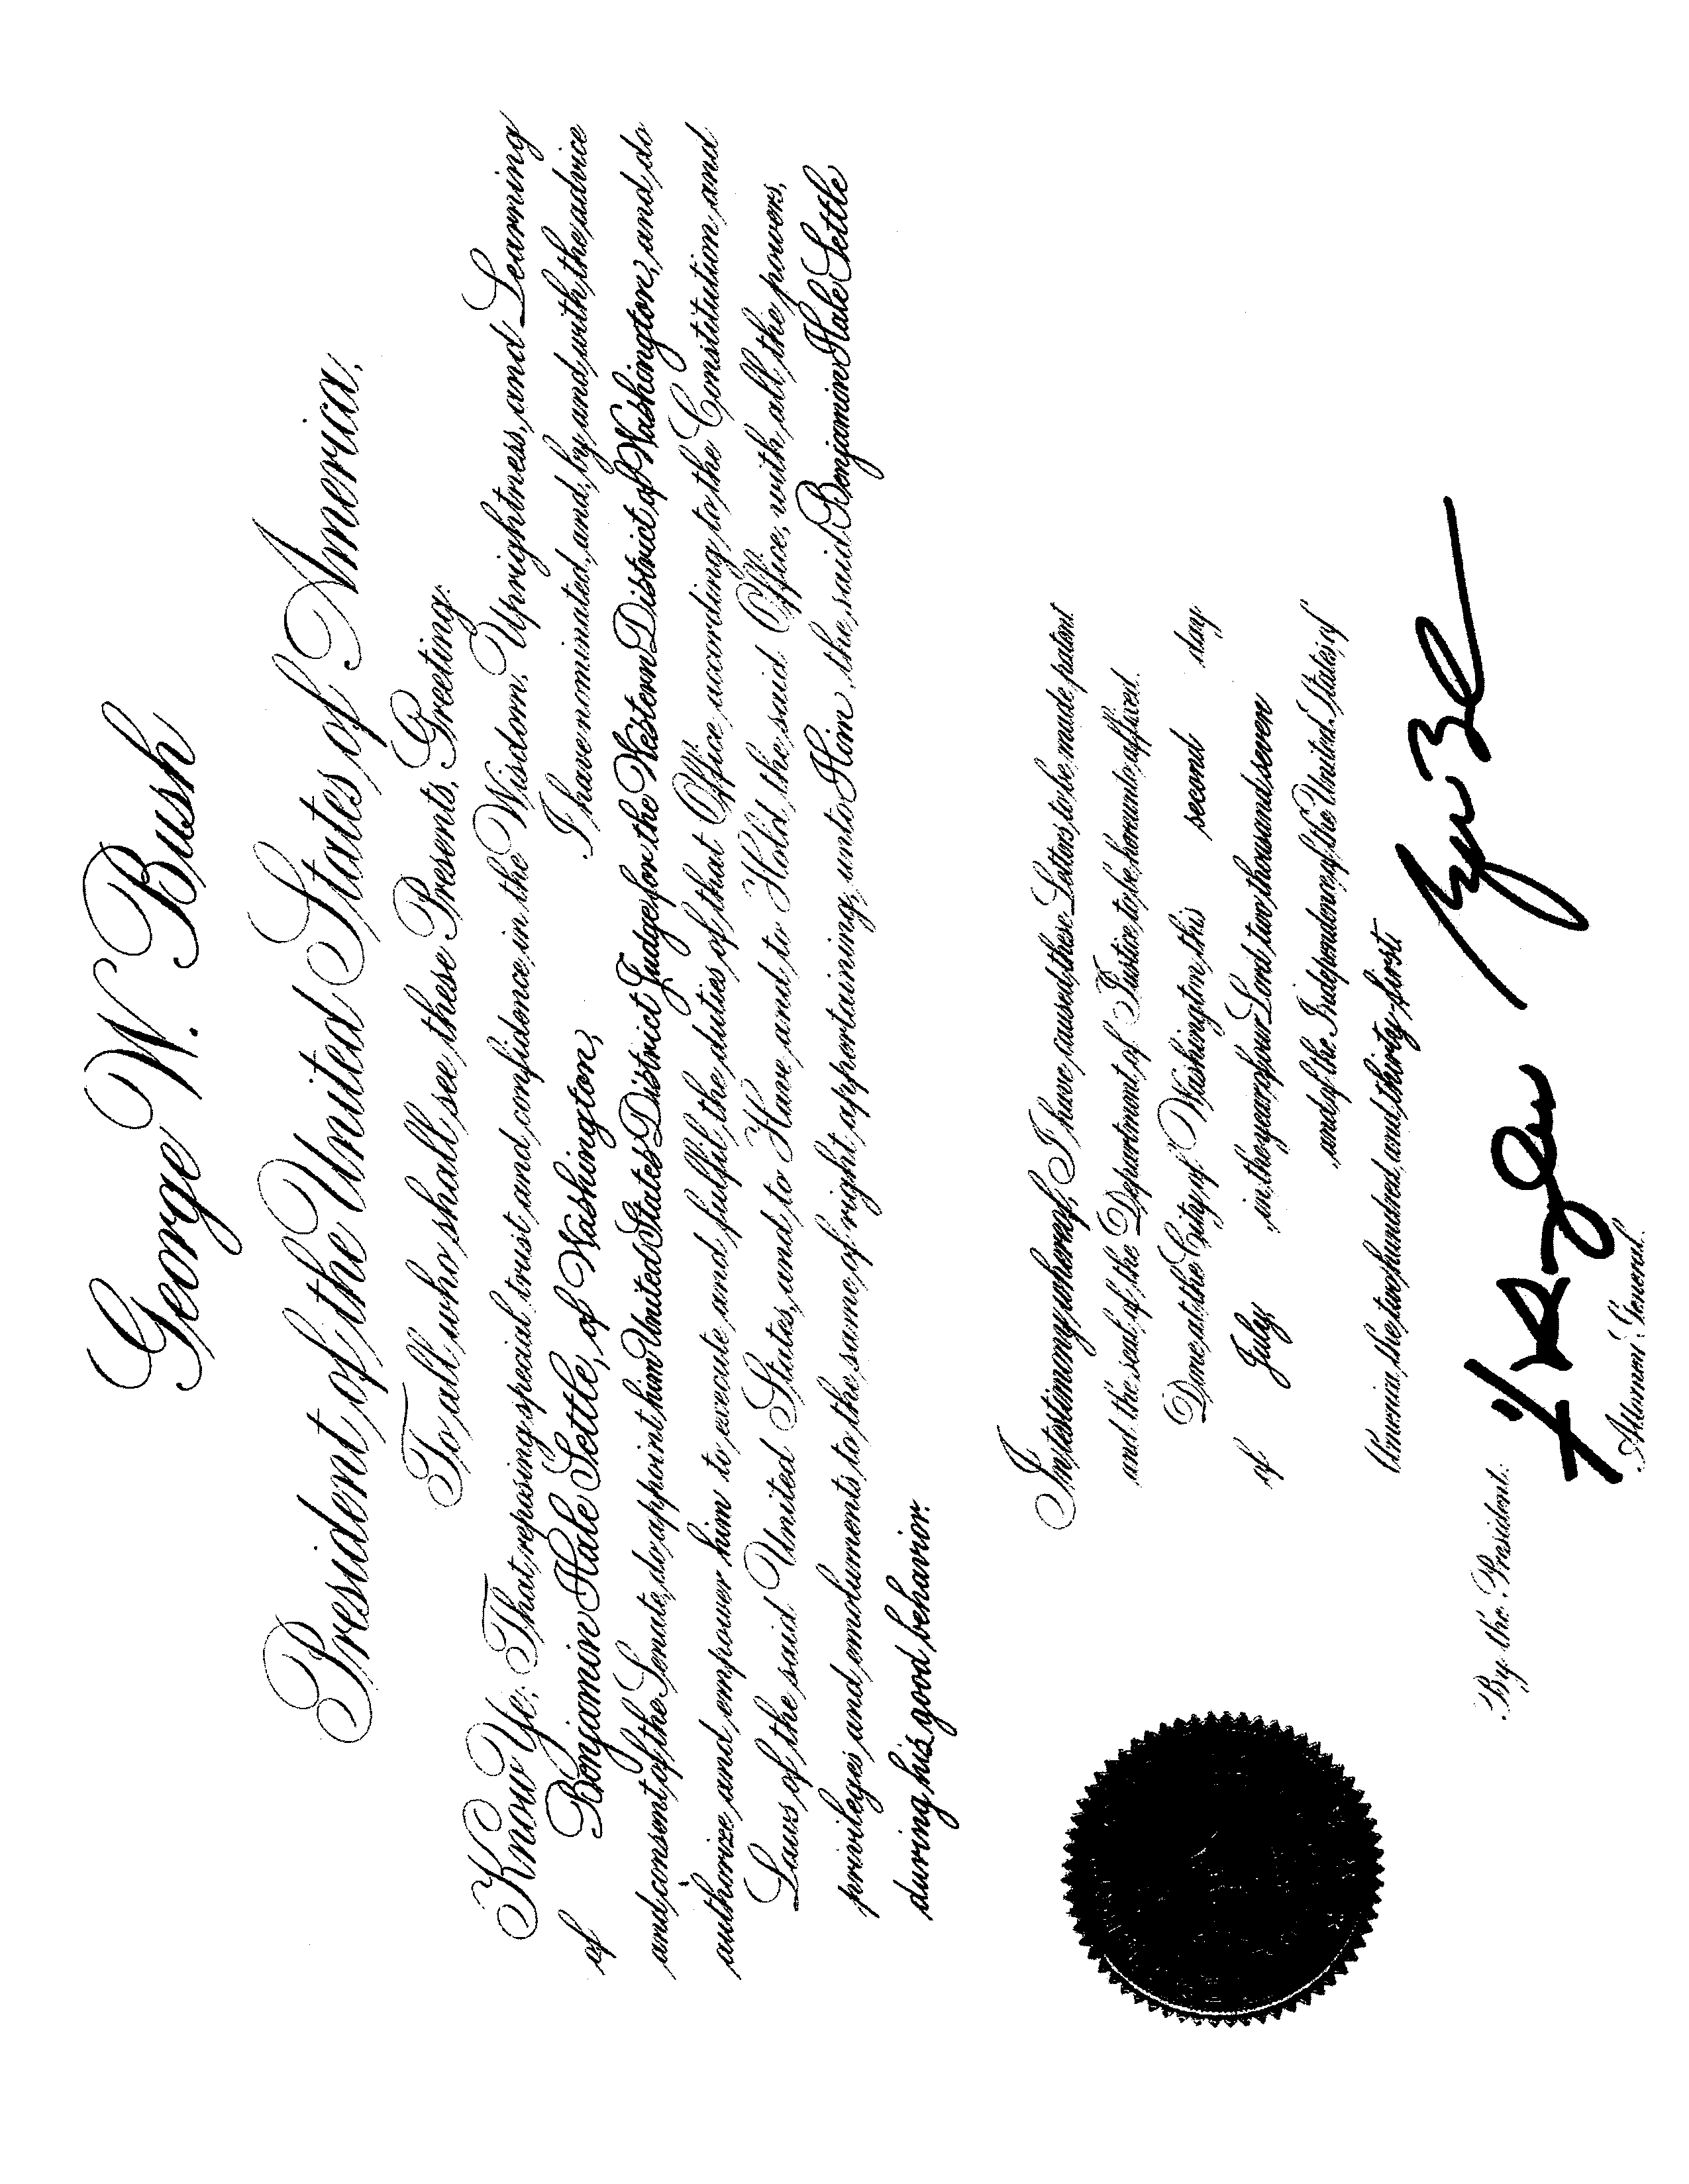 George W. Bush
President of the United States of America,
To all who shall see these Presents, Greeting:
Know Ye: That reposing special trust and confidence in the Wisdom, Uprightness, and Learning
of Benjamin Hale Settle, of Washington, I have nominated, and, by and with the advice
and consent of the Senate, do appoint him United States District Judge for the Western District of Washington, and do
authorize and empower him to execute and fulfil the duties of that Office according to the Constitution and
Laws of the said United States, and to Have and to Hold the said Office, with all the powers,
privileges and emoluments to the same of right appertaining, unto Him, the said Benjamin Hale Settle
during his good behavior.
In testimony whereof, I have caused these Letters to be made patent
and the seal of the Department of Justice to be hereunto affixed.
Done at the City of Washington this second day
of July in the year of our Lord two thousand seven
and of the Independence of the United States of
America the two hundred and thirty-first.
By the President:
Attorney General.